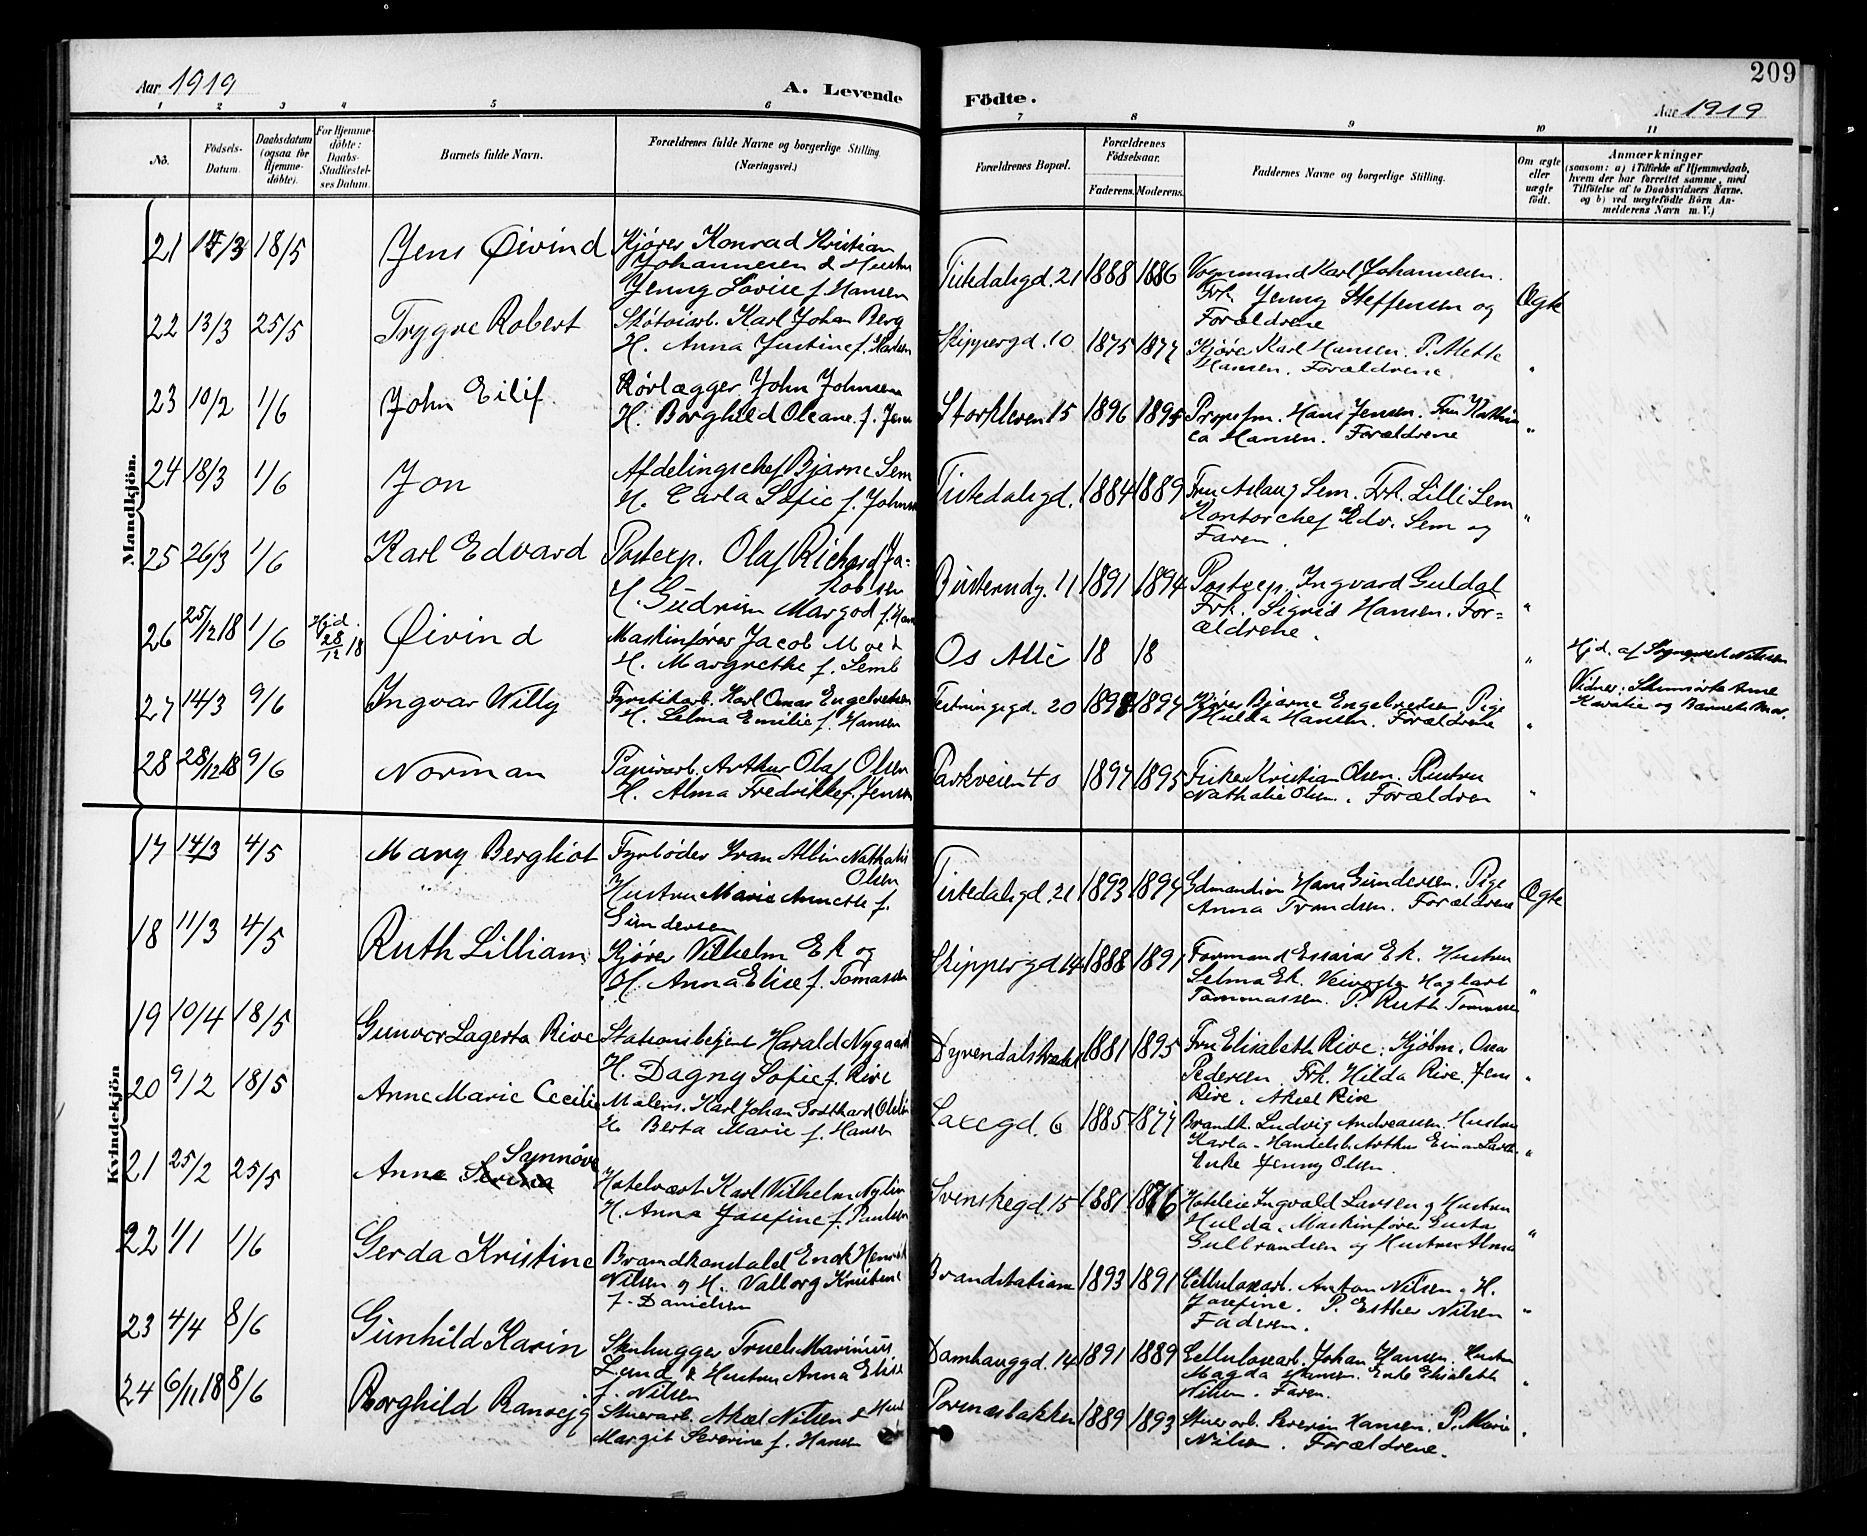 209
Aar 1919
A. Levende
Födte.
Aar 1919
1 2 3 4 5 6 7 8 9 10 11
No.
Födsels-
Datum.
Daabsdatum
(ogsaa for
Hjemme-
döbte).
For Hjemme-
döbte:
Daabs-
Stadfæstel-
ses Datum.
Barnets fulde Navn.
Forældrenes fulde Navne og borgerlige Stilling
(Næringsvei.)
Forældrenes Bopæl.
Forældrenes
Födselsaar.
Faderens. Moderens.
Faddernes Navne og borgerlige Stilling.
Om ægte
eller
uægte
födt.
Anmærkninger
(saasom: a) i Tilfælde af Hjemmedaab,
hvem der har forrettet samme, med
Tilföielse af to Daabsvidners Navne.
og b) ved uægtefödte Börn An-
melderens Navn m. V.)
Mandkjön.
21 15/3 18/5 Jens Øivind
Kjører Konrad Kristian
Johannesen & Hustru
Jenny Lovise f. Hansen
Tistedalsgd. 21 1888 1886
Vognmand Karl Johannesen.
Frk. Jenny Steffensen og
Forældrene
Ægte
22 13/3 25/5 Trygve Robert
Skotøiarb. Karl Johan Berg
H. Anna Justine f. Karlsen
Skippergd. 10 1875 1877
Kjører Karl Hansen. P. Mette
Hansen. Forældrene.
"
23 10/2 1/6 John Eilif
Rørlægger John Johnsen
H. Borghild Oleane f. Jensen
Storkleven 15 1896 1895
Hans Jensen. Fru
Hansen. Forældrene
"
24 18/3 1/6 Jon
Afdelingschef Bjarne Sem
H. Carla Sofie f. Johnsen
Tistedalsgd. 1884 1889
Fru Aslaug Sem. Frk. Lilli Sem
Kontorchef Edv. Sem og
Faren.
"
25 26/3 1/6 Karl Edvard
Postexp. Olaf Richard Ja-
kobsen
H. Gudrun Margot f. Hansen
11 1891 1894
Postexp. Ingvard Guldal
Frk. Sigrid Hansen. For-
ældrene.
"
26 25/12 18 1/6 Hjd. 28/12 18 Øivind
Maskinfører Jacob Moe &
H. Margrethe f. Lemb
Os Alle 18 18
"
Hjd. af Sognepræst Nilssen
Vidner:
og Barnets Mor.
27 14/3 9/6 Ingvar Willy
Fyrstikarb. Karl Omar Engebretsen
H. Selma Emilie f. Hansen
Festningsgd. 20 1898 1897
Kjører Bjarne Engebretsen Pige
Hulda Hansen. Forældrene
"
28 28/12 18 9/6 Norman
Papirarb. Arthur Olaf Olsen
H. Alma Fredrikke f. Jensen
Parkveien 40 1897 1895
Fisker Kristian Olsen. Hustru
Nathalie Olsen. Forældren
"
Kvindekjön
17 14/3 4/5 Mary Bergliot
Fyrbøder Ivan Albin Nathalis
Olsen
Hustru Marie Annette f.
Gundersen
Tistedalsgd. 21 1893 1894
Hans Gundersen. Pige
Anna Trondsen. Forældrene
Ægte
18 11/3 4/5 Ruth Lilliam
Kjører Vilhelm Ek og
H. Anna Elise f. Tomassen
Skippergd 14 1888 1891
Formand Essaias Ek. Hustru
Selma Ek. Veivogter Haglart
Tommassen. P. Ruth
"
19 10/4 18/5 Gunvor Lagerta Rive
Stationsbetjent Harald Nygaard
H. Dagny Sofie f. Rive
Dyrendalsbakken 1881 1895
Fru Elisabeth Rive. Kjøbm. Oscar
Pedersen. Frk. Hilda Rive. Jens
Rive. Aksel Rive
"
20 9/2 18/5 Anne Marie Cecilie
Malerm. Karl Johan Godthard Olsen
H. Berta Marie f. Hansen
Laxegd. 6 1885 1877
Brandk. Ludvig Andreasen. Hustru
Karla. Handelsb. Arthur Einar
Enke Jenny Olsen.
"
21 25/2 25/5 Anna Synnøve
Hotelvært Karl Vilhelm Nylin
H. Anna Josefine f. Paulsen
Svenskegd. 15 1881 1876
Hoteleier Ingvald Larsen og Hustru
Hulda. Maskinfører Gusta
Gulbrandsen og Hustru Alma
"
22 1/1 1/6 Gerda Kristine
Brandkonstabel Enok Henrik
Nilsen og H. Valborg Kristine
f. Danielsen
Brandstation 1893 1891
Cellulosearb. Anton Nilsen og H.
Josefine. P. Esther Nilsen
Faderen.
"
23 4/4 8/6 Gunhild Karin
Stenhugger Truels Marinius
Lund & Hustru Anna Elise
f. Nilsen
Damhauggd. 14 1891 1889
Cellulosearb. Johan Hansen. Hustru
Magda Hansen. Enke Elisabeth
Nilsen. Faren.
"
24 6/11 18 8/6 Borghild Ranveig
Stuerarb. Aksel Nilsen & Hust
Margit Severine f. Hansen
Pornæsbakken 1889 1893
Stuerarb. Severin Hansen. P. Marie
Nilsen. Forældrene.
"